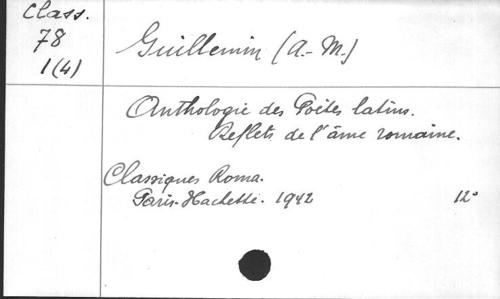 Class.
78
1(4)
Guillemin (A.-M.)
Anthologie des Poètes latins.
Reflets de l'âme romaine.
Classiques Roma.
Paris-Hachette. 1942 12°